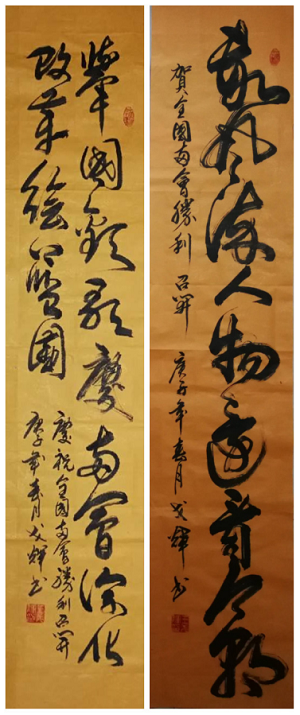 數風流人物還看今朝
賀全國兩會勝利召開
庚子年春月戈輝书
舉國歡歌慶兩會深化
改革繪藍圖
慶祝全國兩會勝利召開
庚子年春月戈輝书